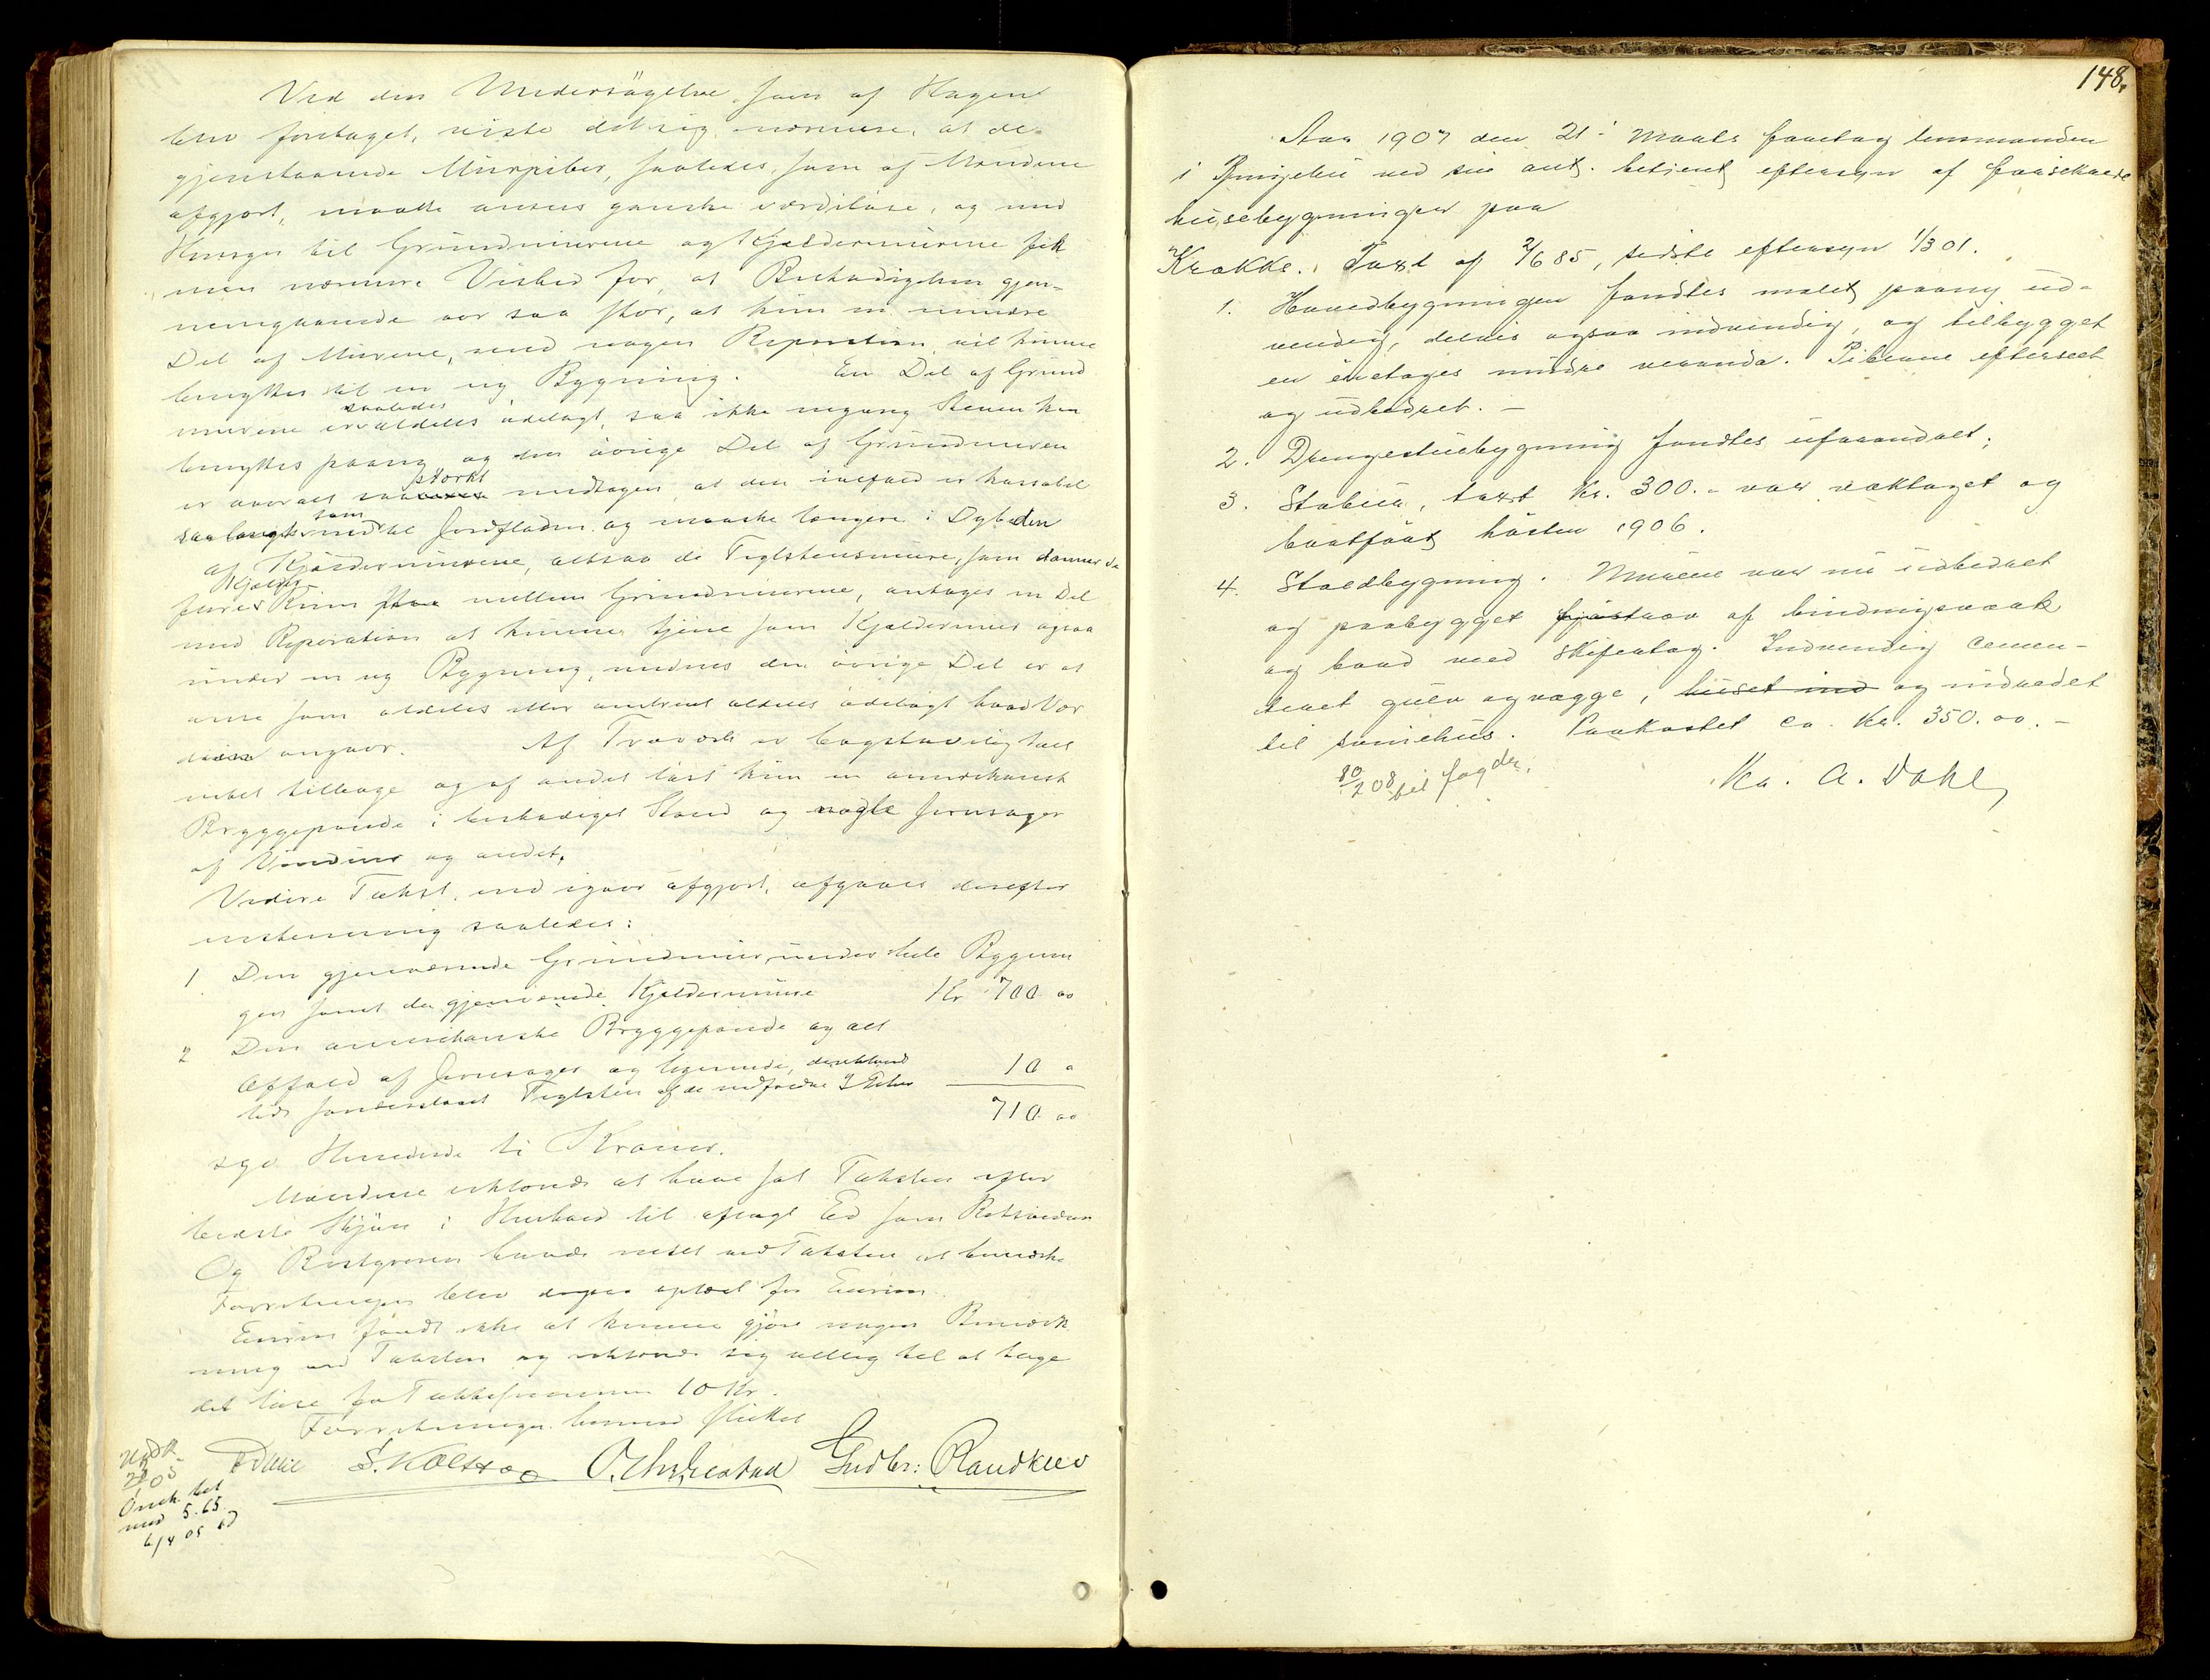 Ved den Undersögelse, som af Hagen
blev foretaget, viste det sig nærmere, at de
gjenstaaende Murpiber, saaledes som af Mændene
afgjort, maatte ansees ganske værdiløse, og med
Hensyn til Grundmurene og Kjeldermurene fik
man nærmere Vished for, at Beskadigelsen gjen-
nemgaaende var saa stor, at kun en mindre
Del af Murene, med nogen Reparation vil kunne
benyttes til en ny Bygning. En Del af Grund
murene er saaledes aldeles ödelagt, saa ikke engang Stenen kan
benyttes paany og den övrige Del af Grundmuren
er overalt saa stærkt medtagen, at den ialfald er kassabel
saa langt som ned til Jordfladen og maaske længere i Dybden
af Kjældermurene, altsaa de Teglstensmure, som danner de
Kjælder Rum mellem Grundmurene, antages en Del
med Reparation at kunne tjene som Kjeldermur ogsaa
under en ny Bygning, medens den övrige Del er at
anse som aldeles eller omtrent aldeles ödelagt hvad Vær
dien angaar. Af Træværk er bogstavelig talt
intet tilbage og af andet löst kun en amerikansk
Bryggepande i beskadiget Stand og nogle Jernsager
af Vinduer og andet.
Videre Takst, end igaar afgjort, afgaves derefter
enstemmig saaledes:
1 Den gjenværende Grundmur under hele Bygnin
gen samt de gjenværende Kjeldermure Kr 700 00
2 Den amerikanske Bryggepande og alt
Affald af Jernsager og lignende, 10 "
Teglsten af de nedfaldne Piber
710 00
syv Hundrede ti Kroner.
Mændene erklærede at have sat Taksten efter
bedste Skjön i Henhold til aflagt Ed som Retsvidner
Og Bestyreren havde intet ved Taksten at bemærke
Forretningen blev ogsaa oplæst for Eieren.
Eieren fandt ikke at kunne gjöre nogen Bemærk
ning ved Taksten og erklærede sig villig til at tage
det löse for Takstsummen 10 Kr.
Forretningen hermed sluttet
S. Kolstad Gudbr: Randklev
5.65
6/4 05
148.
Aar 1907 den 21de Marts foretog lensmanden
i Ringebu ved sin aut. betjent eftersyn af forsikrede
husebygninger paa
Krække. Taxt af 2/6 85, sidste eftersyn 1/3 01.
1. Hovedbygningen fandtes malet paany ud-
vendig, deelvis ogsaa indvendig, og tilbygget
en énetages mindre veranda. Piberne efterseet
og udbedret. –
2. Drengestuebygning fandtes uforandret;
3. Stabur, taxt Kr. 300.- var nedtaget og
bortfört hösten 1906.
4. Staldbygning. Murene var nu udbedret
og paabygget af bindingsværk
og bord med skifertag. Indvendig cemen-
teret gulv og vægge, huset ind og indredet
til svinehus. Paakostet ca. Kr. 350.00.-
til fogden.
Kr. A. Dahl,